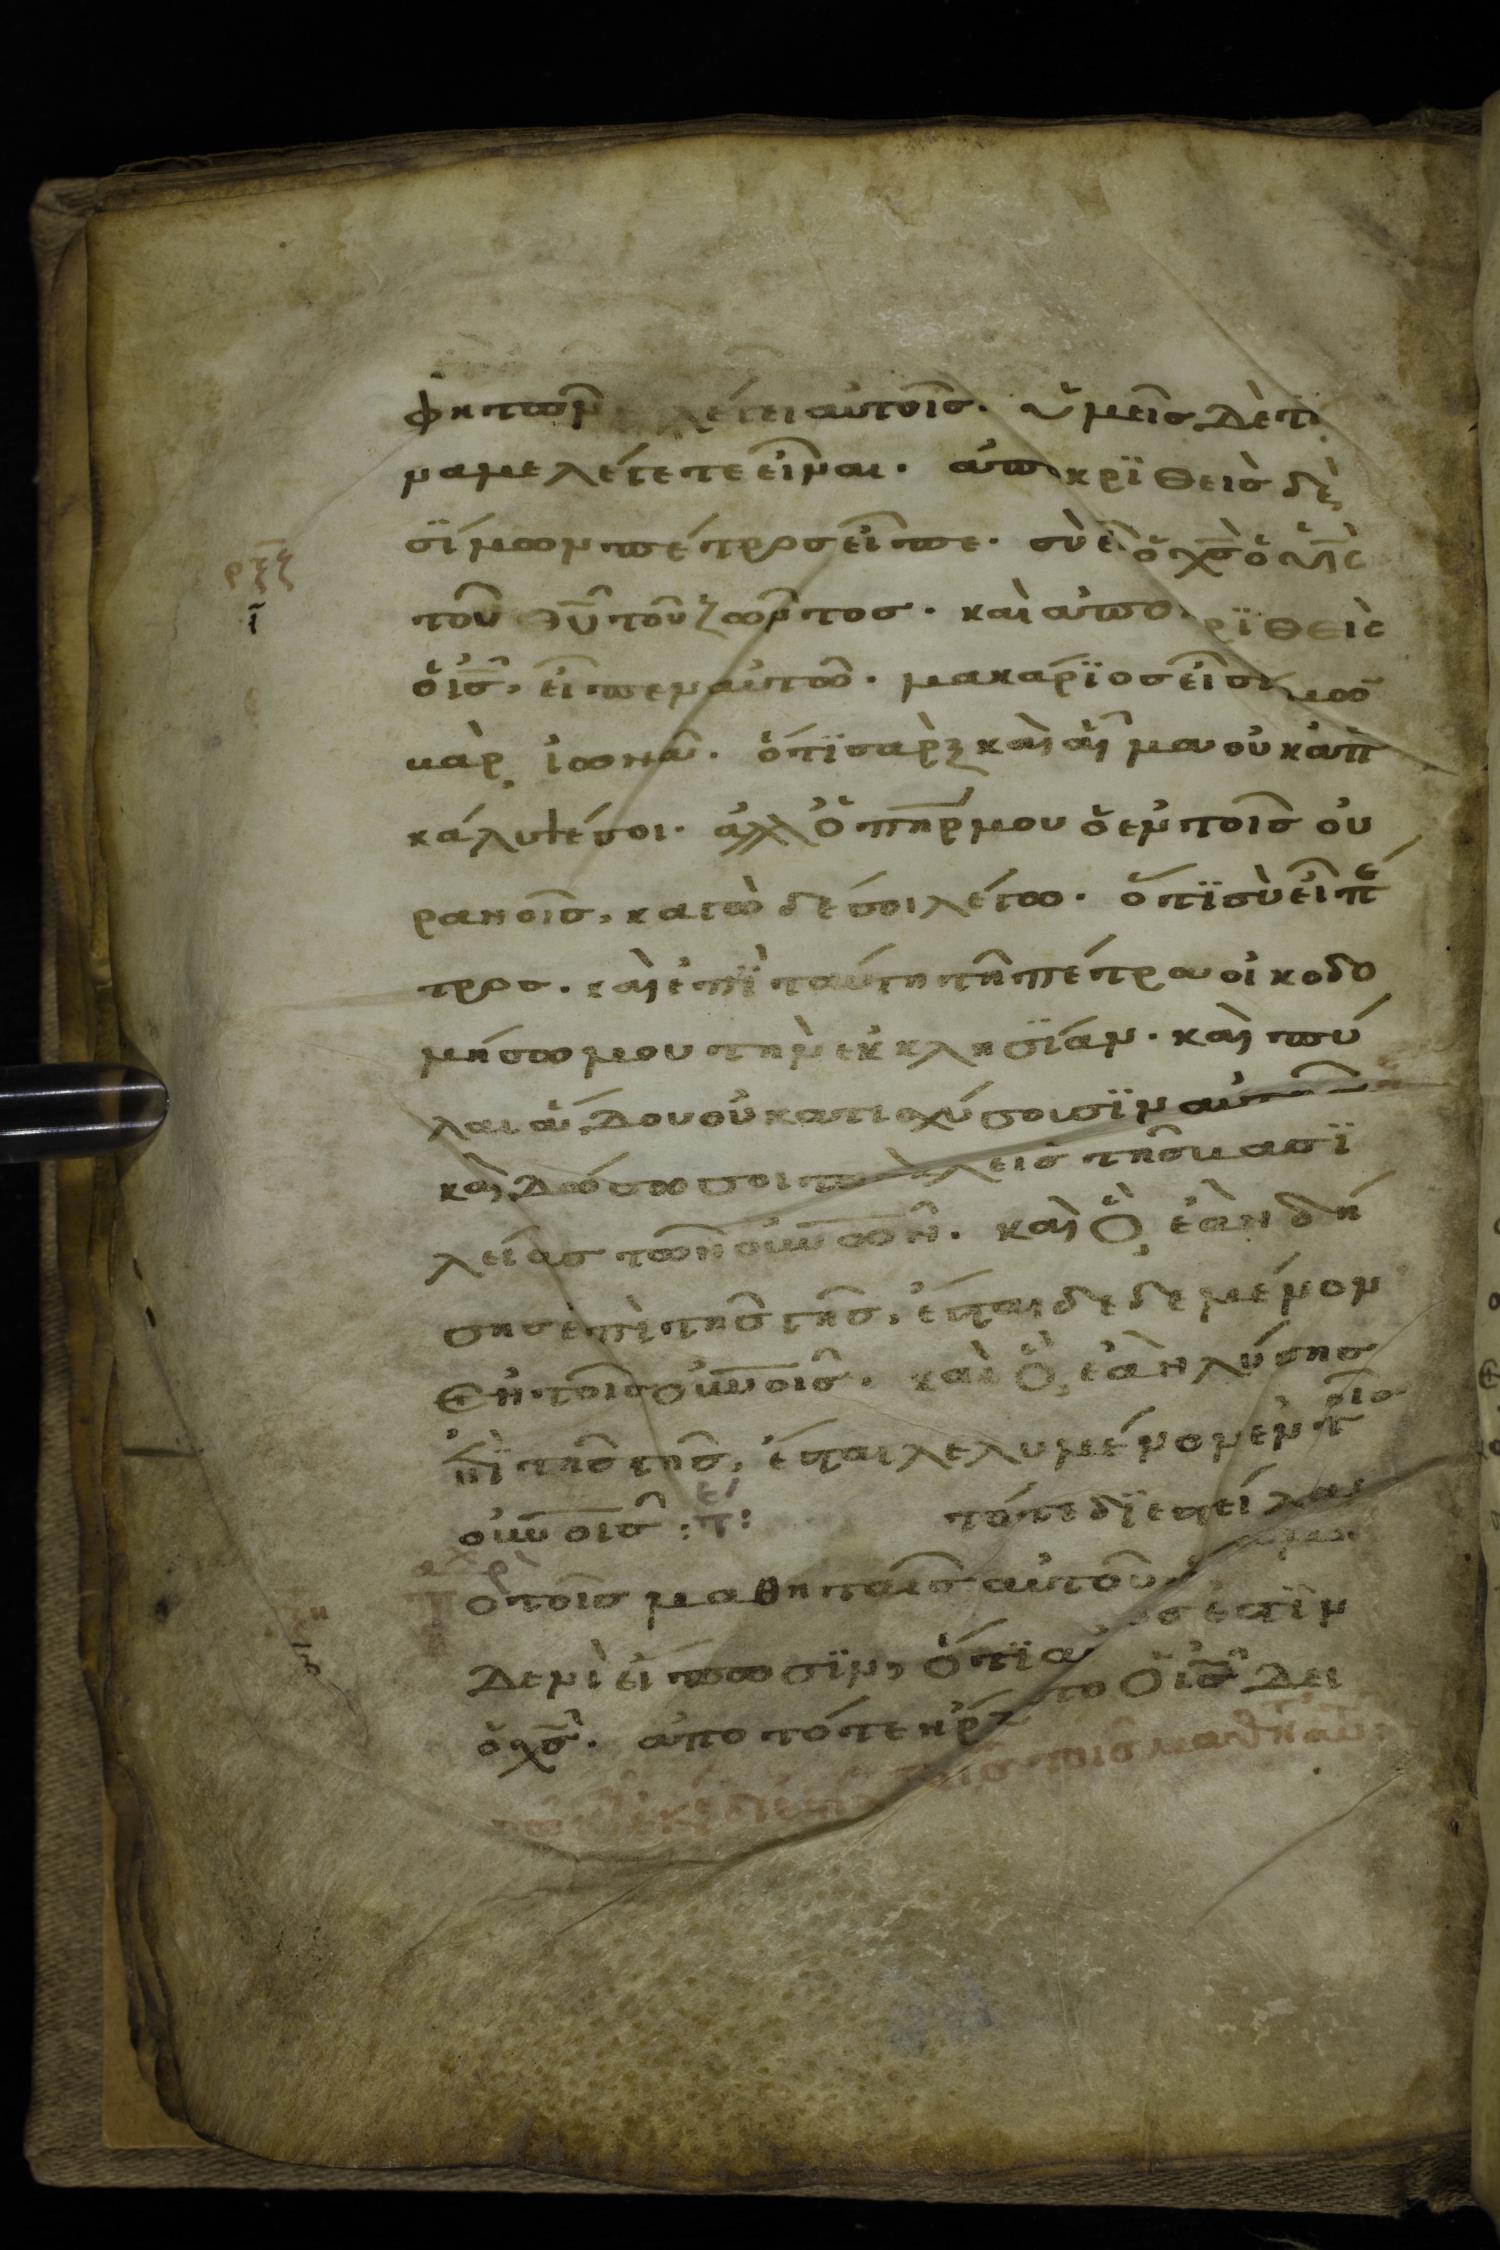 φητῶν λέγει αὐτοῖσ. ὑμεῖσ δὲ τί
να με λέγετε εἶναι. ἀποκρϊθεὶσ δὲ
σΐμων πέτροσ εἶπε. σὺ εἶ ὁ χ̅σ̅ ὁ υ̅ι̅σ̅
τοῦ θ̅υ̅ τοῦ ζῶντοσ. καὶ ἀποκρϊθεὶσ
ρξζ
ι̅
ὁ ι̅σ̅, εἶπεν αὐτῶ. μακάρϊοσ εἶ σίμων
βὰρ ἰωνᾶ. ὅτϊ σὰρξ καὶ αἷμα οὐκ ἀπε
κάλυψέ σοι. ἀλλ' ὁ π̅η̅ρ̅ μου ὁ ἐν τοῖσ οὐ
ρανοῖσ, κἀγὼ δέ σοι λέγω. ὅτϊ σὺ εἶ πέ
τροσ. καὶ ἐπὶ ταύτη τῆ πέτρα οἰκοδο
μήσω μου τὴν ἐκκλησϊάν. καὶ πύ
λαι ἅδου οὐ κατισχύσουσϊν αὐτῆσ
καὶ δώσω σοι τὰσ κλεῖσ τῆσ βασϊ
λείασ τῶν ο̅υ̅ν̅ῶν. καὶ ὃ ἐὰν δή
σησ ἐπὶ τῆσ γῆσ, ἔσται δεδεμένον
ἐν τοῖσ ο̅υ̅ν̅οῖσ. καὶ ὃ ἐὰν λύσησ
ἐπὶ τῆσ γῆσ, ἔσται λελυμένον ἐν τοῖσ
ο̅υ̅ν̅οῖσ : τε: τότε δϊεστείλα
το τοῖσ μαθηταῖσ αὐτοῦ ἵνα μη
δενὶ εἴπωσϊν, ὅτϊ αὐτόσ ἐστϊν
ὁ χ̅σ̅. ἀπὸ τότε ἤρξατο ὁ ι̅σ̅ δει